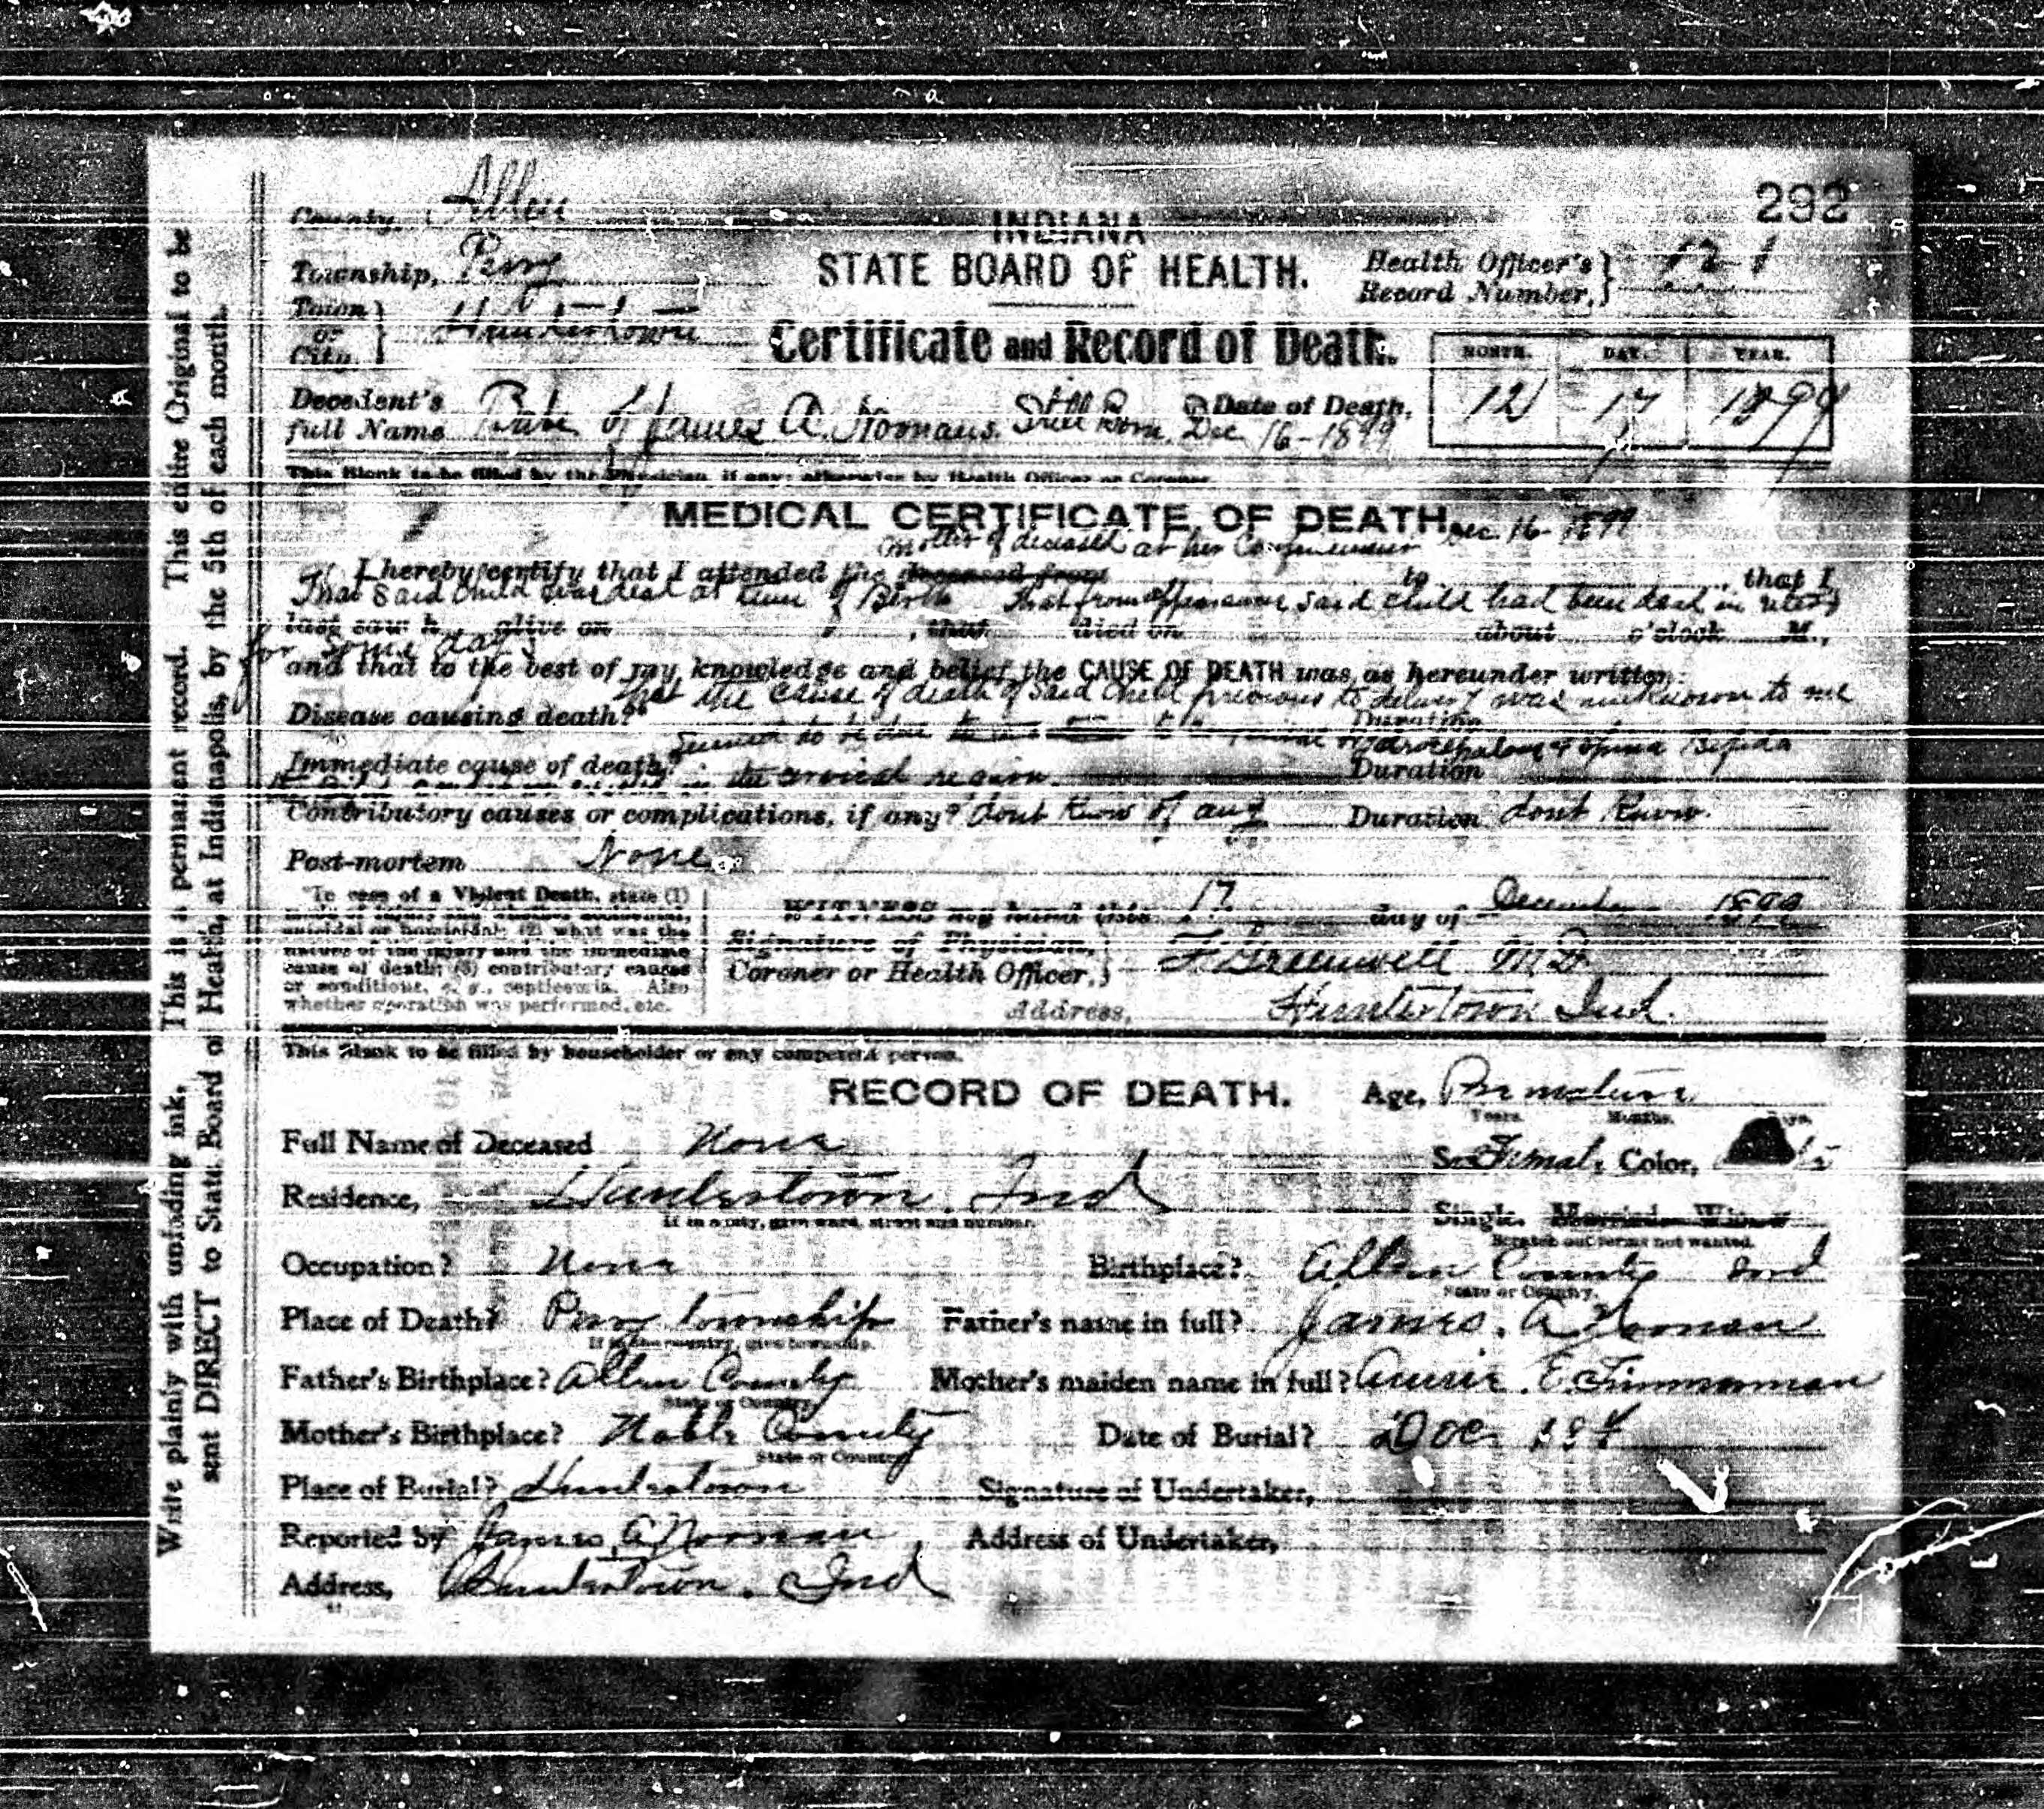 292
County, Allen
INDIANA
Township, Perry
STATE BOARD OF HEALTH.
Health Officer's Record Number,
Town or City. Huntertown
Certificate and Record of Death.
MONTH. DAY. YEAR.
Decedent's full Name Babe of James A. Nomans. Still Born. Dec 16-1899 Date of Death, 12 17 1899
This Blank to be filled by the Physician, if any; otherwise by Health Officer or Coroner.
MEDICAL CERTIFICATE OF DEATH. Dec. 16-1899
mother of deceased at her Confinement
I hereby certify that I attended the deceased from to , that I
That said child was dead at time of Birth That from appearance said child had been dead in utero
last saw h alive on , that died on about o'clock M.,
for some days
and that to the best of my knowledge and belief the CAUSE OF DEATH was, as hereunder written:
that the cause of death of said child previous to delivery was unknown to me
Disease causing death?* Duration
seemed to be due to Hydrocephalous & Spina Bifida
Immediate cause of death? in the cervical region Duration
Contributory causes or complications, if any? dont know of any Duration dont know.
Post-mortem None
*In case of a Violent Death, state (1)
suicidal or homicidal; (2) what was the
nature of the injury and the immediate
cause of death; (3) contributory causes
or conditions, e. g., septicemia. Also
whether operation was performed, etc.
WITNESS my hand this 17 day of December 1899
Signature of Physician, Coroner or Health Officer, F. Greenwell M D
Address, Huntertown Ind.
This Blank to be filled by householder or any competent person.
RECORD OF DEATH. Age, Premature
Years. Months. Days.
Full Name of Deceased None
Sex Female Color,
Residence, Huntertown, Ind
If in a city, give ward, street and number.
Single. Married. Widow
Scratch out terms not wanted.
Occupation? None Birthplace? Allen County Ind
State or Country.
Place of Death? Perry township Father's name in full? James. A Noonan
If in the country, give township.
Father's Birthplace? Allen County Mother's maiden name in full? Annie. E. Zimmerman
State or Country.
Mother's Birthplace? Noble County Date of Burial? Dec
State or Country.
Place of Burial? Huntertown Signature of Undertaker,
Reported by James A Noonan Address of Undertaker,
Address, Huntertown. Ind
Write plainly with unfading ink, This is a permanent record. This entire Original to be
sent DIRECT to State Board of Health, at Indianapolis, by the 5th of each month.